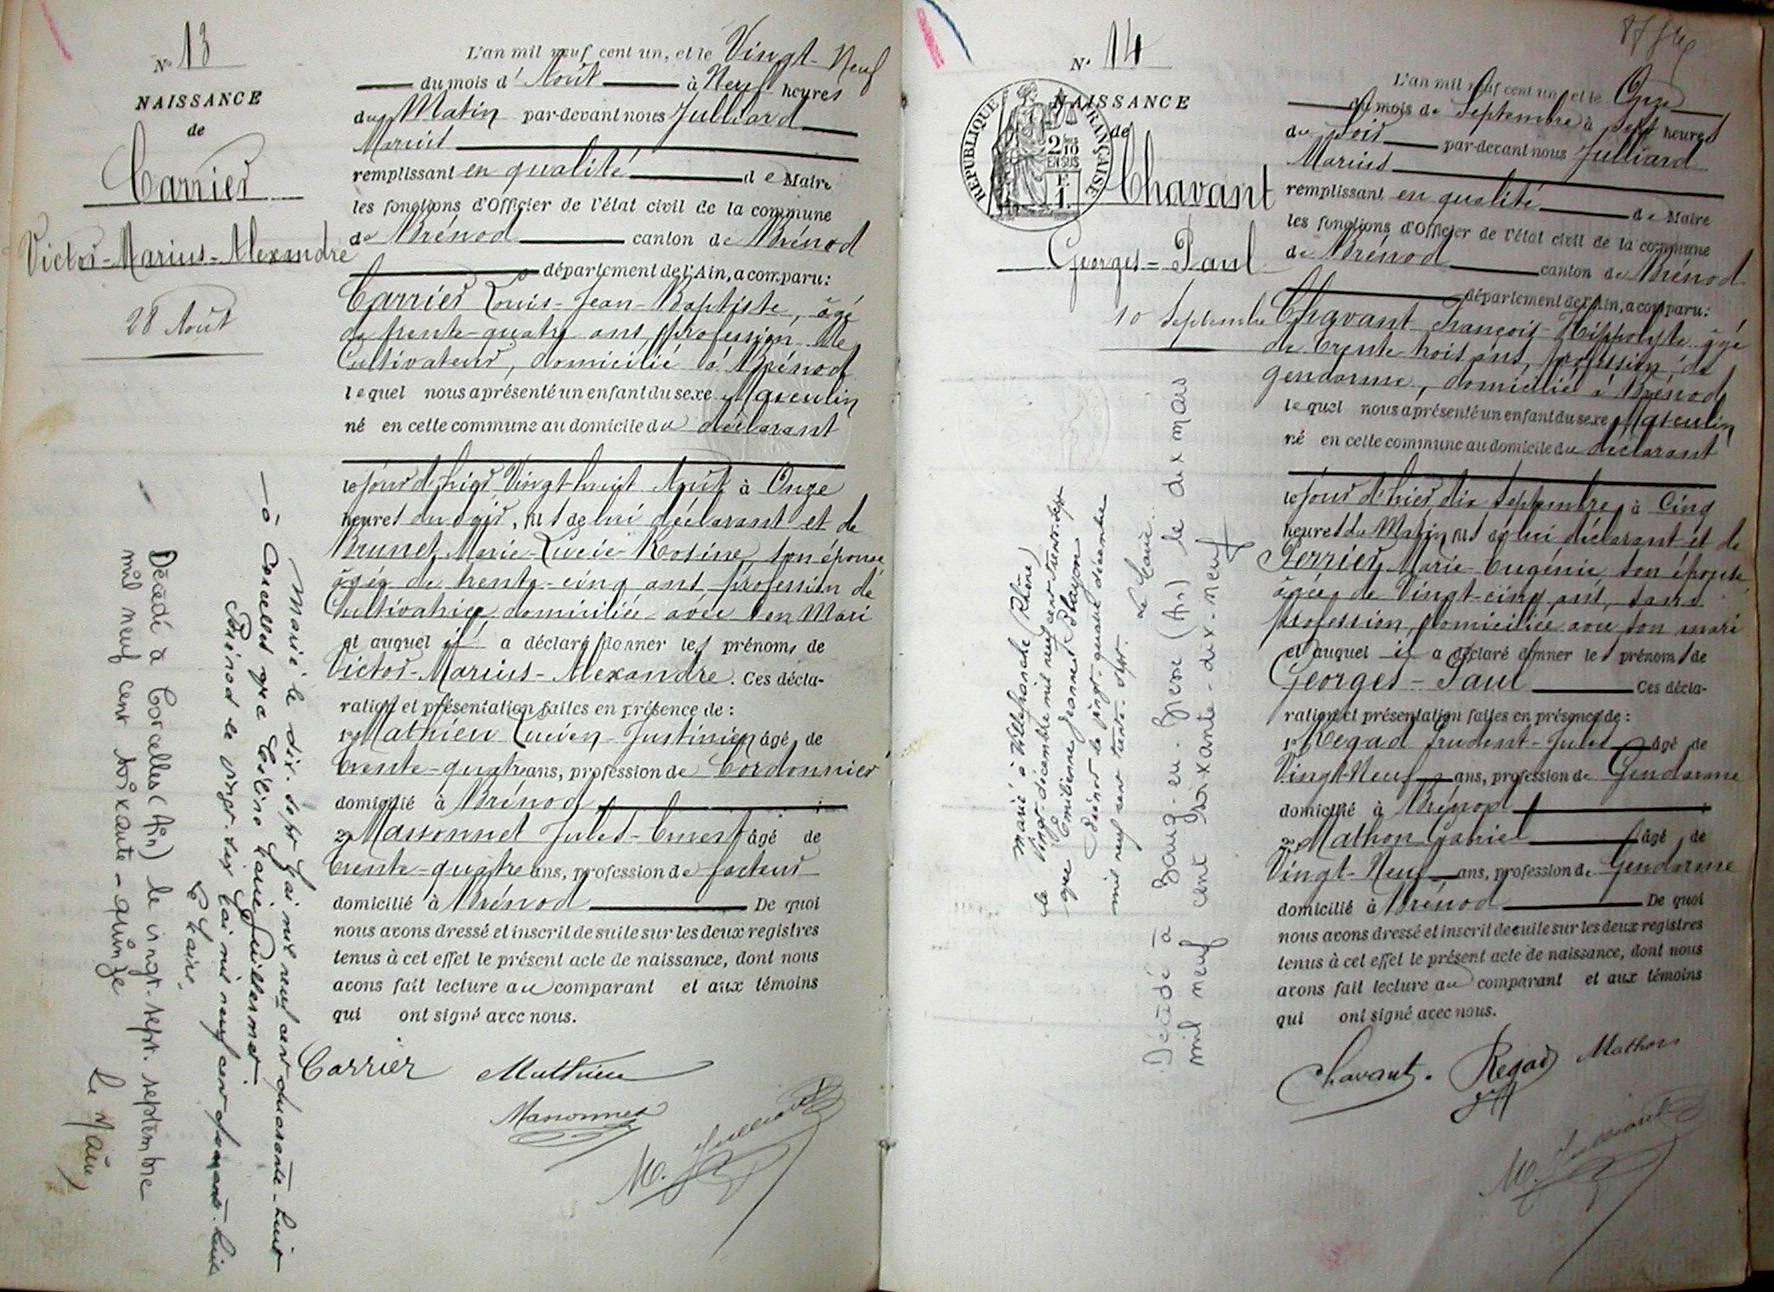 N° 13
NAISSANCE
de
Carrier
Victor-Marius-Alexandre
28 Août
L'an mil neuf cent un, et le Vingt-Neuf
du mois d'Août à Neuf heures
du Matin par-devant nous Julliard
Marius
remplissant en qualité de Maire
les fonctions d'Officier de l'état civil de la commune
de Brénod canton de Brénod
département de l'Ain, a comparu:
Carrier Louis-Jean-Baptiste, âgé
de trente-quatre ans, profession de
Cultivateur, domicilié à Brénod
lequel nous a présenté un enfant du sexe Masculin
né en cette commune au domicile du déclarant
le jour d'hier Vingt-huit Août à Onze
heures du soir, fils de lui déclarant et de
Brunet Marie-Lucie-Rosine, son épouse
âgée de trente-cinq ans, profession de
Cultivatrice domiciliée avec son Mari
et auquel il a déclaré donner les prénoms de
Victor-Marius-Alexandre. Ces décla-
ration et présentation faites en présence de :
1° Mathieu Lucien-Justinien âgé de
trente-quatre ans, profession de Cordonnier
domicilié à Brénod
2° Massonnet Jules-Ernest âgé de
trente-quatre ans, profession de facteur
domicilié à Brénod De quoi
nous avons dressé et inscrit de suite sur les deux registres
tenus à cet effet le présent acte de naissance, dont nous
avons fait lecture au comparant et aux témoins
qui ont signé avec nous.
Carrier Mathieu
Massonnet
M. Julliard
Marié le dix-sept Mai mil neuf cent quarante-huit
à Corcelles avec Marie Guillermet
Brénod le vingt-six Mai mil neuf cent quarante-huit
Le Maire,
Décédé à Corcelles (Ain) le vingt-sept septembre
mil neuf cent soixante-quinze
Le Maire,
N° 14
NAISSANCE
de
REPUBLIQUE FRANÇAISE
2/10
EN SUS
Chavant
Georges-Paul
10 Septembre
L'an mil neuf cent un, et le Onze
du mois de Septembre à sept heures
du soir par-devant nous Julliard
Marius
remplissant en qualité de Maire
les fonctions d'Officier de l'état civil de la commune
de Brénod canton de Brénod
département de l'Ain, a comparu:
Chavant François-Hippolyte âgé
de trente trois ans, profession de
gendarme, domicilié à Brénod
lequel nous a présenté un enfant du sexe Masculin
né en cette commune au domicile du déclarant
le jour d'hier dix Septembre, à Cinq
heures du Matin fils de lui déclarant et de
Perrier, Marie-Eugénie son épouse
âgée de Vingt-cinq ans, sans
profession, domiciliée avec son mari
et auquel il a déclaré donner les prénoms de
Georges-Paul Ces décla-
ration et présentation faites en présence de :
1° Regad Prudent-Jules âgé de
Vingt-Neuf ans, profession de Gendarme
domicilié à Brénod
2° Mathon Gabriel âgé de
Vingt-Neuf ans, profession de Gendarme
domicilié à Brénod De quoi
nous avons dressé et inscrit de suite sur les deux registres
tenus à cet effet le présent acte de naissance, dont nous
avons fait lecture au comparant et aux témoins
qui ont signé avec nous.
Chavant. Regad Mathon
M. Julliard
Marié à Villefranche (Rhône)
le vingt décembre mil neuf cent trente-sept
avec Emilienne Jeannet Playon
Brénod le vingt-quatre décembre
mil neuf cent trente-sept.
Le Maire.
Décédé à Bourg-en-Bresse (Ain) le dix mars
mil neuf cent soixante-dix-neuf